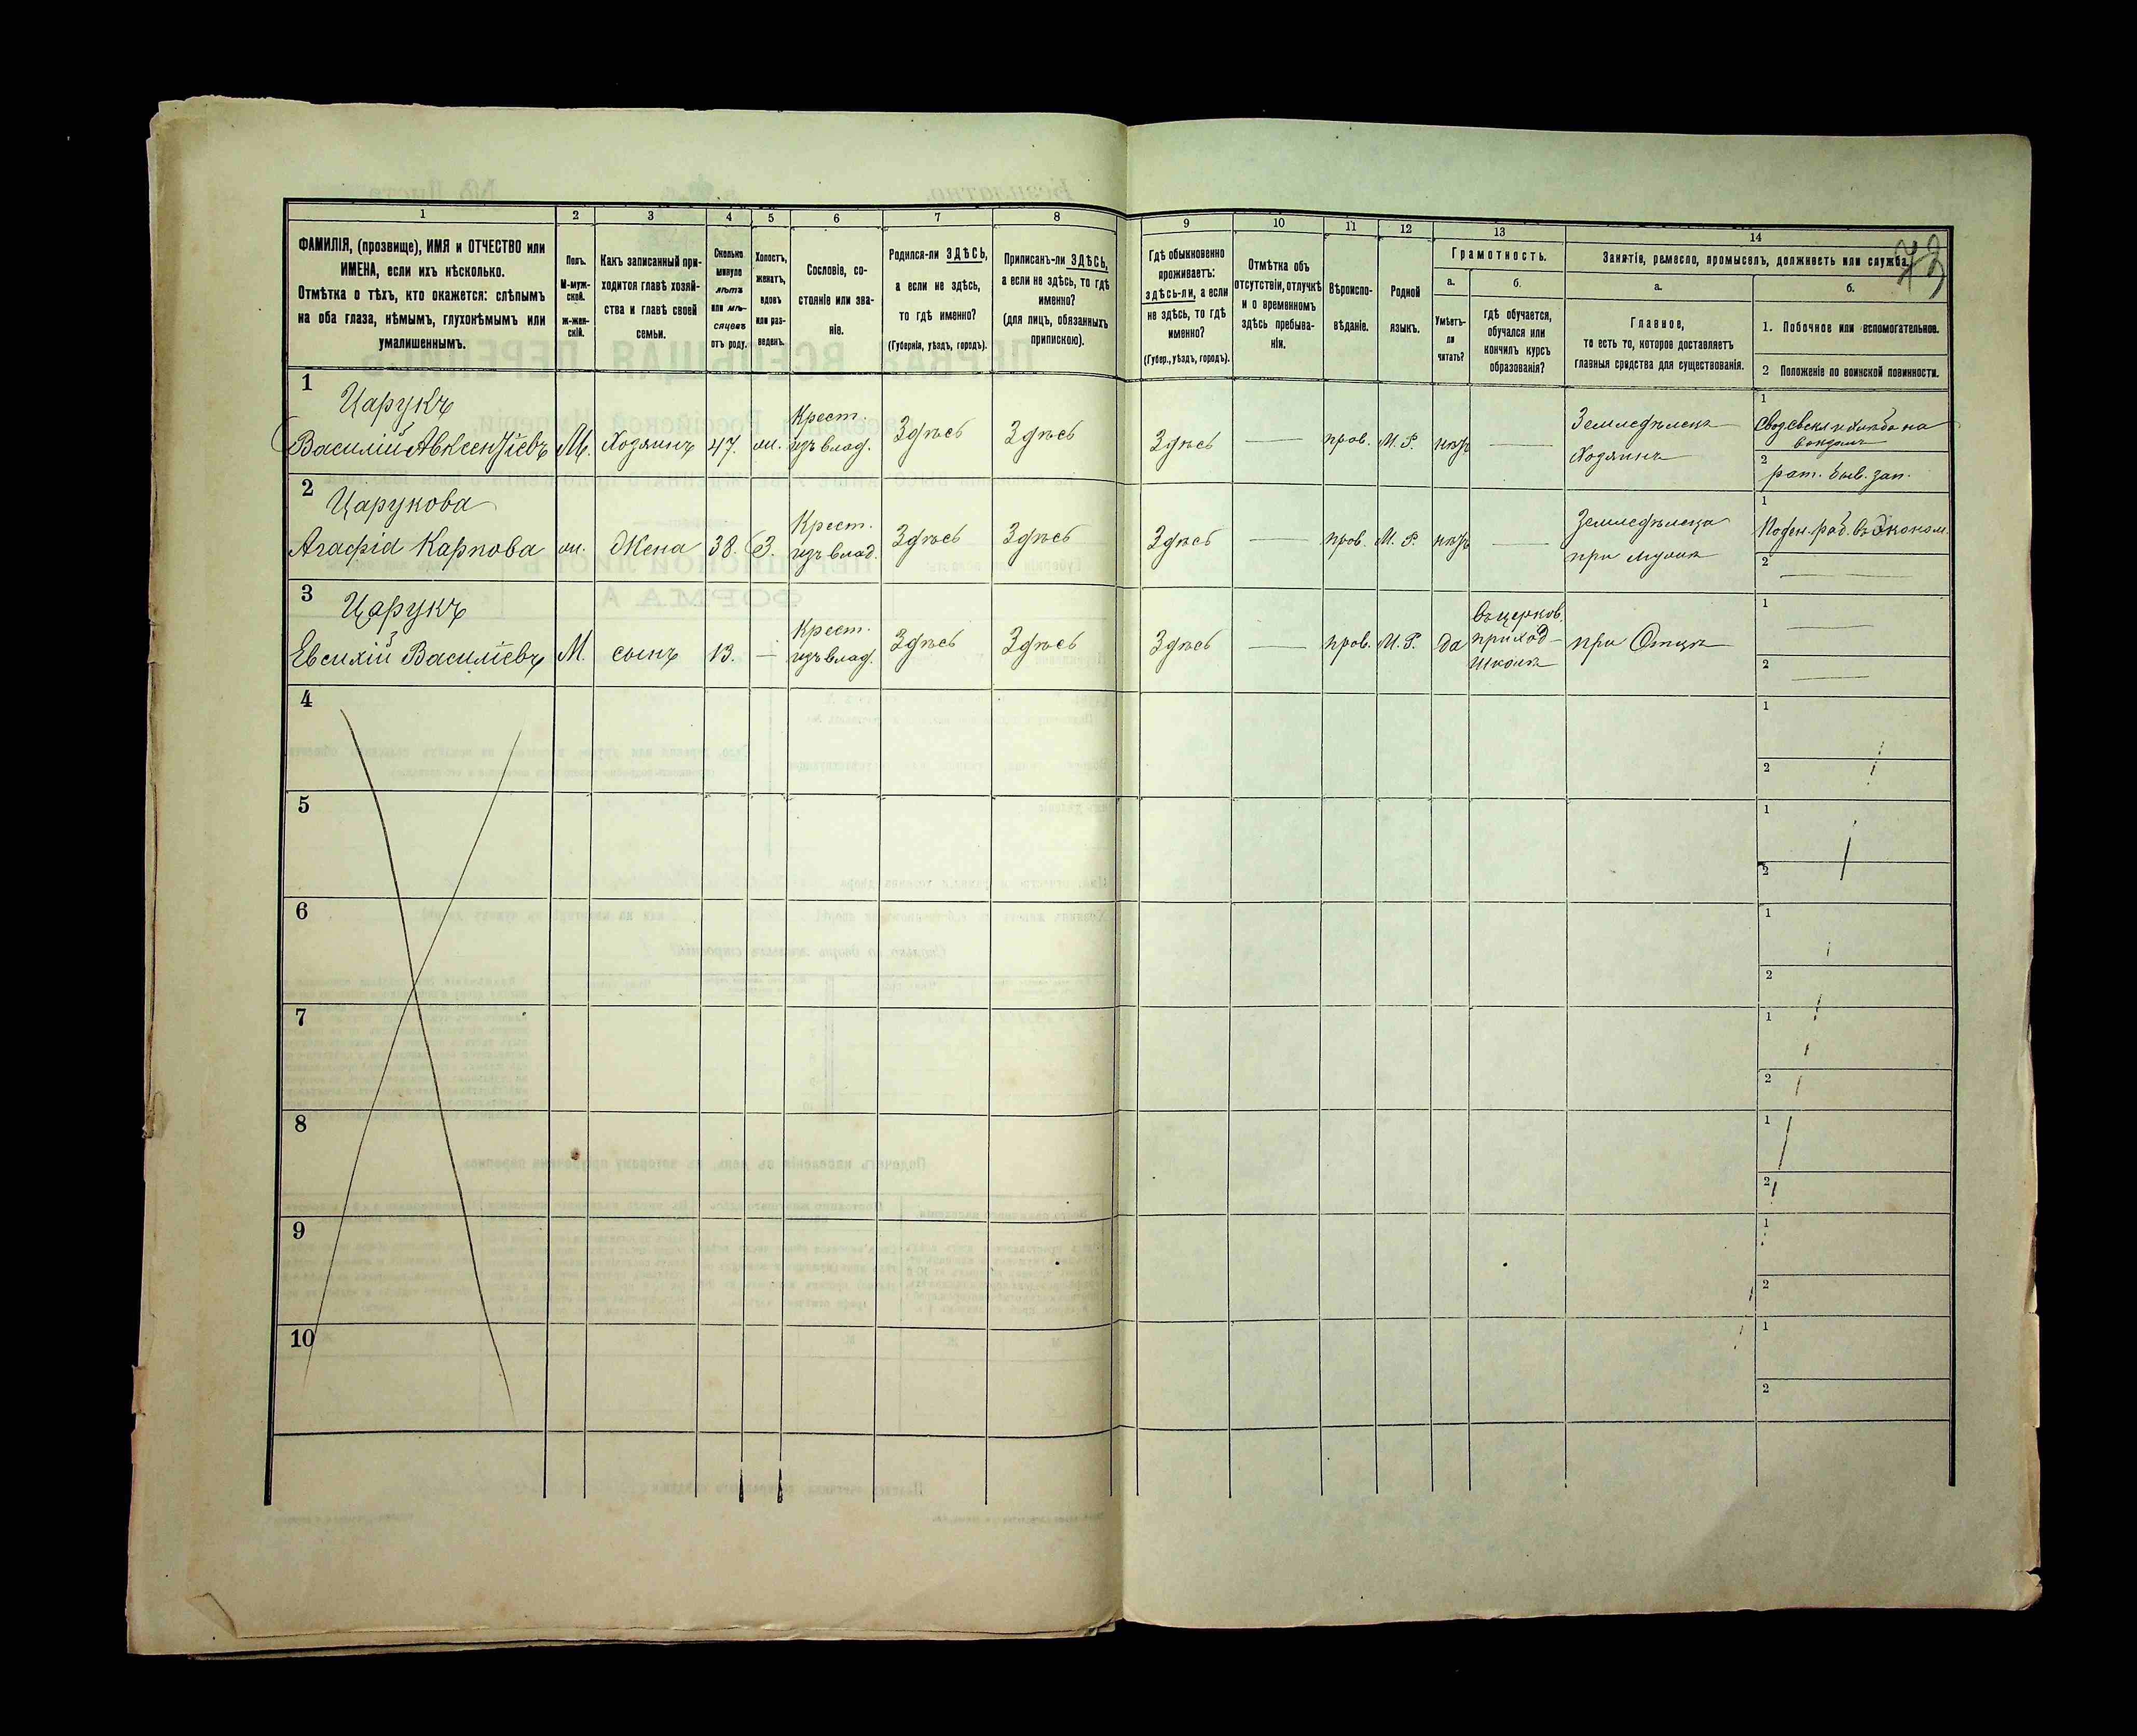 1 2 3 4 5 6 7 8 9 10 11 12 13 14
ФАМИЛІЯ, (прозвище), ИМЯ и ОТЧЕСТВО или
ИМЕНА, если ихъ нѣсколько.
Отмѣтка о тѣхъ, кто окажется: слѣпымъ
на оба глаза, нѣмымъ, глухонѣмымъ или
умалишеннымъ.
Полъ.
М-муж-
ской.
Ж-жен-
скій.
Какъ записанный при-
ходится главѣ хозяй-
ства и главѣ своей
семьи.
Сколько
минуло
лѣтъ
или мѣ-
сяцевъ
отъ роду.
Холостъ,
женатъ,
вдовъ
или раз-
веденъ.
Сословіе, со-
стояніе или зва-
ніе.
Родился-ли ЗДѢСЬ,
а если не здѣсь,
то гдѣ именно?
(Губернія, уѣздъ, городъ).
Приписанъ-ли ЗДѢСЬ,
а если не здѣсь, то гдѣ
именно?
(для лицъ, обязанныхъ
припискою).
Гдѣ обыкновенно
проживаетъ:
здѣсь-ли, а если
не здѣсь, то гдѣ
именно?
(Губер., уѣздъ, городъ).
Отмѣтка объ
отсутствіи, отлучкѣ
и о временномъ
здѣсь пребыва-
ніи.
Вѣроиспо-
вѣданіе.
Родной
языкъ.
Грамотность.
а.
Умѣетъ-
ли
читать?
б.
гдѣ обучается,
обучался или
кончилъ курсъ
образованія?
Занятіе, ремесло, промыселъ, должность или служба.
а.
Главное,
то есть то, которое доставляетъ
главныя средства для существованія.
б.
1. Побочное или вспомогательное.
2 Положеніе по воинской повинности.
1
Царукъ
Василій Авксентіевъ М. Хозяинъ 47. ж. Крест. изъ влад. Здѣсь Здѣсь Здѣсь — прав. М. Р. нѣтъ — Земледѣлецъ
Хозяинъ
1
2
рат. быв. зап.
2
Царукова
Агафія Карпова ж. Жена 38. З. Крест. изъ влад. Здѣсь Здѣсь Здѣсь — прав. М. Р. нѣтъ — Земледѣлица
при мужѣ
1
Поден. раб. въ Эконом.
2 —
3
Царукъ
Евсихій Василіевъ М. сынъ 13. — Крест. изъ влад. Здѣсь Здѣсь Здѣсь — прав. М. Р. да въ церков.
приход-
школѣ
при Отцѣ
1 —
2 —
4
1
2
5
1
2
6
1
2
7
1
2
8
1
2
9
1
2
10
1
2